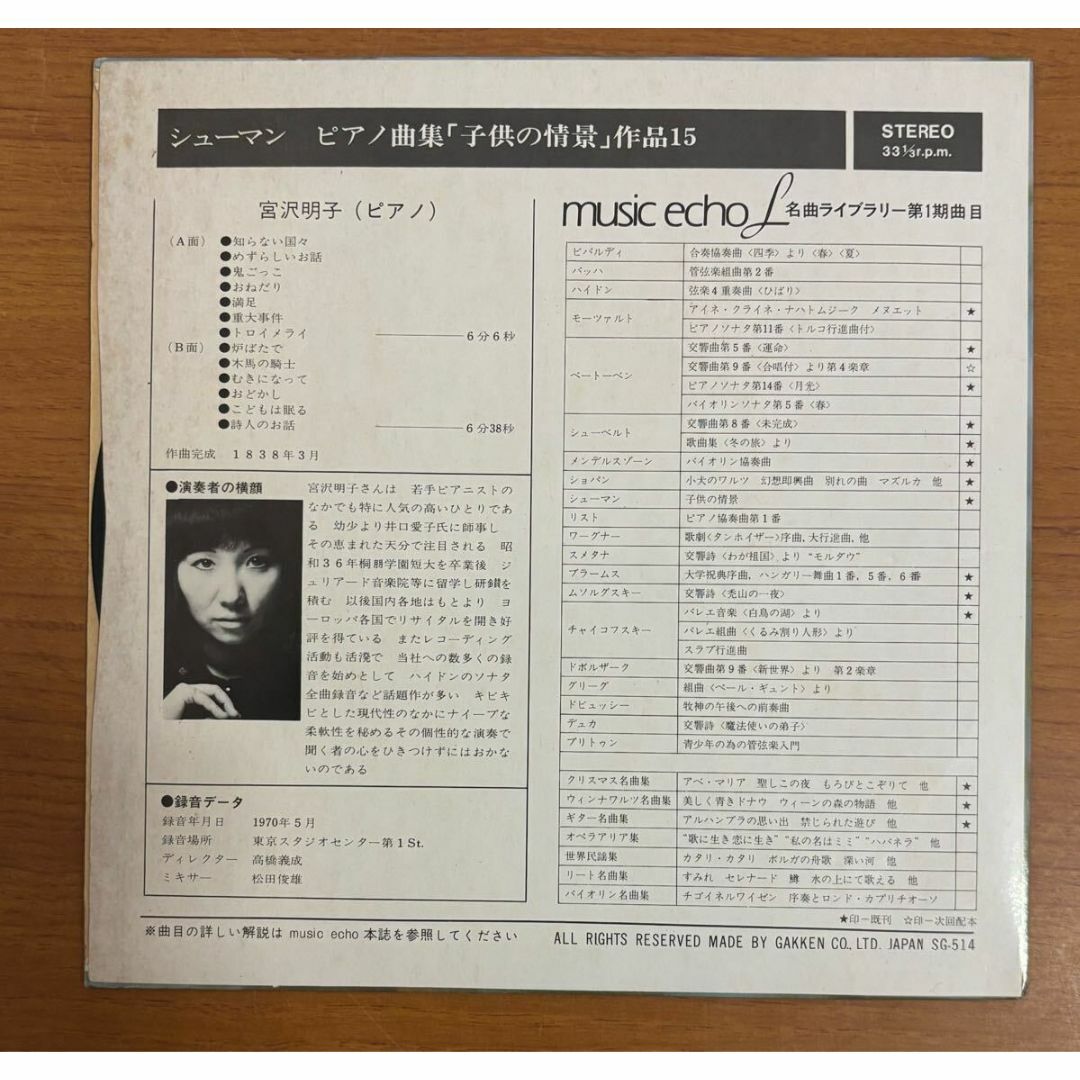 シューマン ピアノ曲集「子供の情景」作品15
STEREO
33⅓r.p.m.
宮沢明子（ピアノ）
（A面） ●知らない国々
●めずらしいお話
●鬼ごっこ
●おねだり
●満足
●重大事件
●トロイメライ ――― 6分6秒
（B面） ●炉ばたで
●木馬の騎士
●むきになって
●おどかし
●こどもは眠る
●詩人のお話 ――― 6分38秒
作曲完成 1838年3月
●演奏者の横顔
宮沢明子さんは 若手ピアニストの
なかでも特に人気の高いひとりであ
る 幼少より井口愛子氏に師事し
その恵まれた天分で注目される 昭
和36年桐朋学園短大を卒業後 ジ
ュリアード音楽院等に留学し研鑚を
積む 以後国内各地はもとより ヨ
ーロッパ各国でリサイタルを開き好
評を得ている またレコーディング
活動も活溌で 当社への数多くの録
音を始めとして ハイドンのソナタ
全曲録音など話題作が多い キビキ
ビとした現代性のなかにナイーブな
柔軟性を秘めるその個性的な演奏で
聞く者の心をひきつけずにはおかな
いのである
●録音データ
録音年月日 1970年5月
録音場所 東京スタジオセンター第1St.
ディレクター 高橋義成
ミキサー 松田俊雄
music echo L 名曲ライブラリー第1期曲目
ビバルディ 合奏協奏曲〈四季〉より〈春〉〈夏〉
バッハ 管弦楽組曲第2番
ハイドン 弦楽4重奏曲〈ひばり〉
モーツァルト アイネ・クライネ・ナハトムジーク メヌエット ★
ピアノソナタ第11番〈トルコ行進曲付〉
ベートーベン 交響曲第5番〈運命〉 ★
交響曲第9番〈合唱付〉より第4楽章 ☆
ピアノソナタ第14番〈月光〉 ★
バイオリンソナタ第5番〈春〉
シューベルト 交響曲第8番〈未完成〉 ★
歌曲集〈冬の旅〉より ★
メンデルスゾーン バイオリン協奏曲 ★
ショパン 小犬のワルツ 幻想即興曲 別れの曲 マズルカ 他 ★
シューマン 子供の情景 ★
リスト ピアノ協奏曲第1番
ワーグナー 歌劇〈タンホイザー〉序曲，大行進曲，他
スメタナ 交響詩〈わが祖国〉より “モルダウ”
ブラームス 大学祝典序曲，ハンガリー舞曲1番，5番，6番 ★
ムソルグスキー 交響詩〈禿山の一夜〉 ★
チャイコフスキー バレエ音楽〈白鳥の湖〉より ★
バレエ組曲〈くるみ割り人形〉より
スラブ行進曲
ドボルザーク 交響曲第9番〈新世界〉より 第2楽章
グリーグ 組曲〈ペール・ギュント〉より
ドビュッシー 牧神の午後への前奏曲
デュカ 交響詩〈魔法使いの弟子〉
ブリトゥン 青少年の為の管弦楽入門
クリスマス名曲集 アベ・マリア 聖しこの夜 もろびとこぞりて 他 ★
ウィンナワルツ名曲集 美しく青きドナウ ウィーンの森の物語 他 ★
ギター名曲集 アルハンブラの思い出 禁じられた遊び 他 ★
オペラアリア集 “歌に生き恋に生き” “私の名はミミ” “ハバネラ” 他
世界民謡集 カタリ・カタリ ボルガの舟歌 深い河 他
リート名曲集 すみれ セレナード 鱒 水の上にて歌える 他
バイオリン名曲集 チゴイネルワイゼン 序奏とロンド・カプリチオーソ
★印－既刊 ☆印－次回配本
※曲目の詳しい解説は music echo 本誌を参照してください
ALL RIGHTS RESERVED MADE BY GAKKEN CO., LTD. JAPAN SG-514